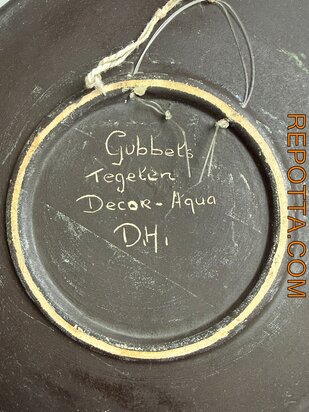 Gubbels
Tegelen
Decor-Aqua
D.H.
REPOTTA.COM